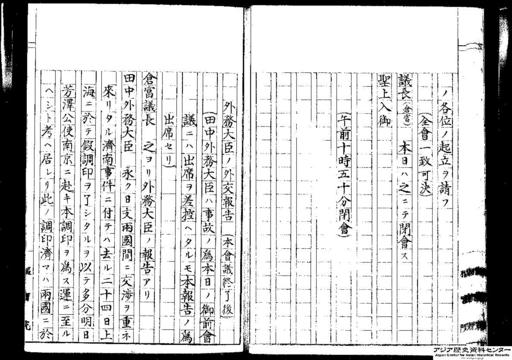 ノ各位ノ起立ヲ請フ
(全會一致可決)
議長(倉富) 本日ハ之ニテ閉會ス
聖上入御
(午前十時五十分閉會)
外務大臣ノ外交報告(本會議終了後)
(田中外務大臣ハ事故ノ爲本日ノ御前會
議ニハ出席ヲ差控ヘタルモ本報告ノ爲
出席セリ)
倉富議長 之ヨリ外務大臣ノ報告アリ
田中外務大臣 永ク日支兩國間ニ交渉ヲ重ネ
來リタル濟南事件ニ付テハ去ル二十四日上
海ニ於テ假調印ヲ了シタルヲ以テ多分明日
芳澤公使南京ニ赴キ本調印ヲ爲ス運ニ至ル
ヘシト考ヘ居レリ此ノ調印濟マハ兩國ニ於
アジア歴史資料センター
Japan Center for Asian Historical Records